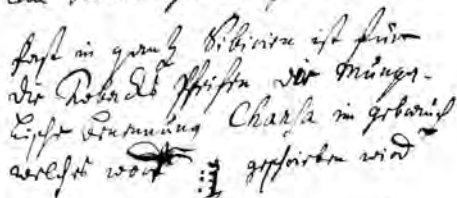 fast in gantz Sibirien ist für
die Tobacks Pfeifen die Munga-
lische benennung Chansa im gebrauch
welches wort geschrieben wird